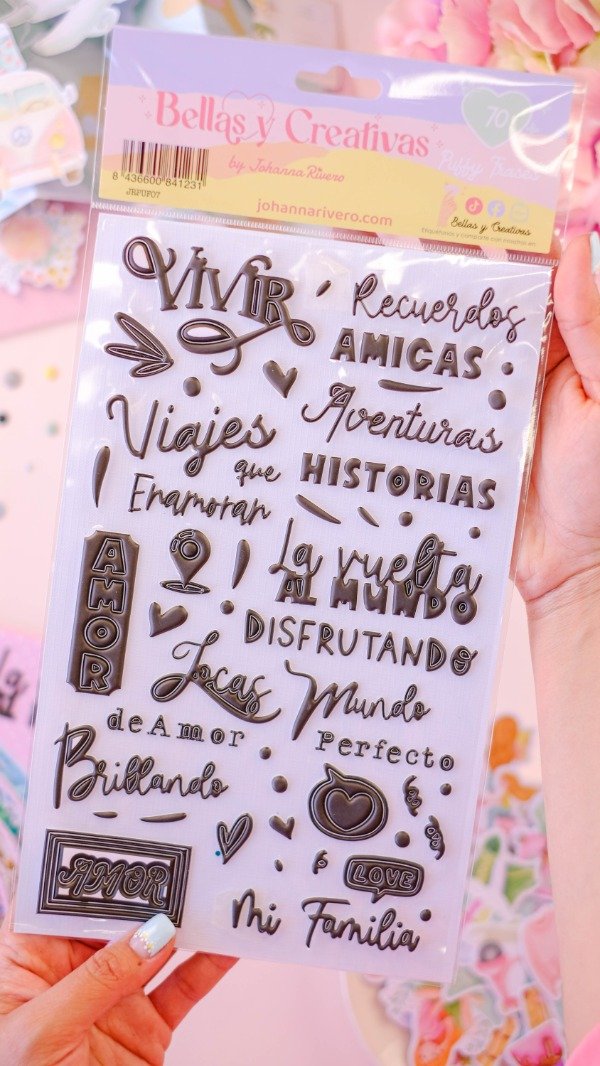 Bellas y Creativas
70
by Johanna Rivero
Puffy Frases
8 436600 841231
JRPUF07
johannarivero.com
Bellas y Creativas
VIVIR
Recuerdos
AMIGAS
Viajes
Aventuras
que
Enamoran
HISTORIAS
La vuelta
AL MUNDO
AMOR
DISFRUTANDO
Locas
Mundo
de Amor
Perfecto
Brillando
AMOR
LOVE
mi Familia